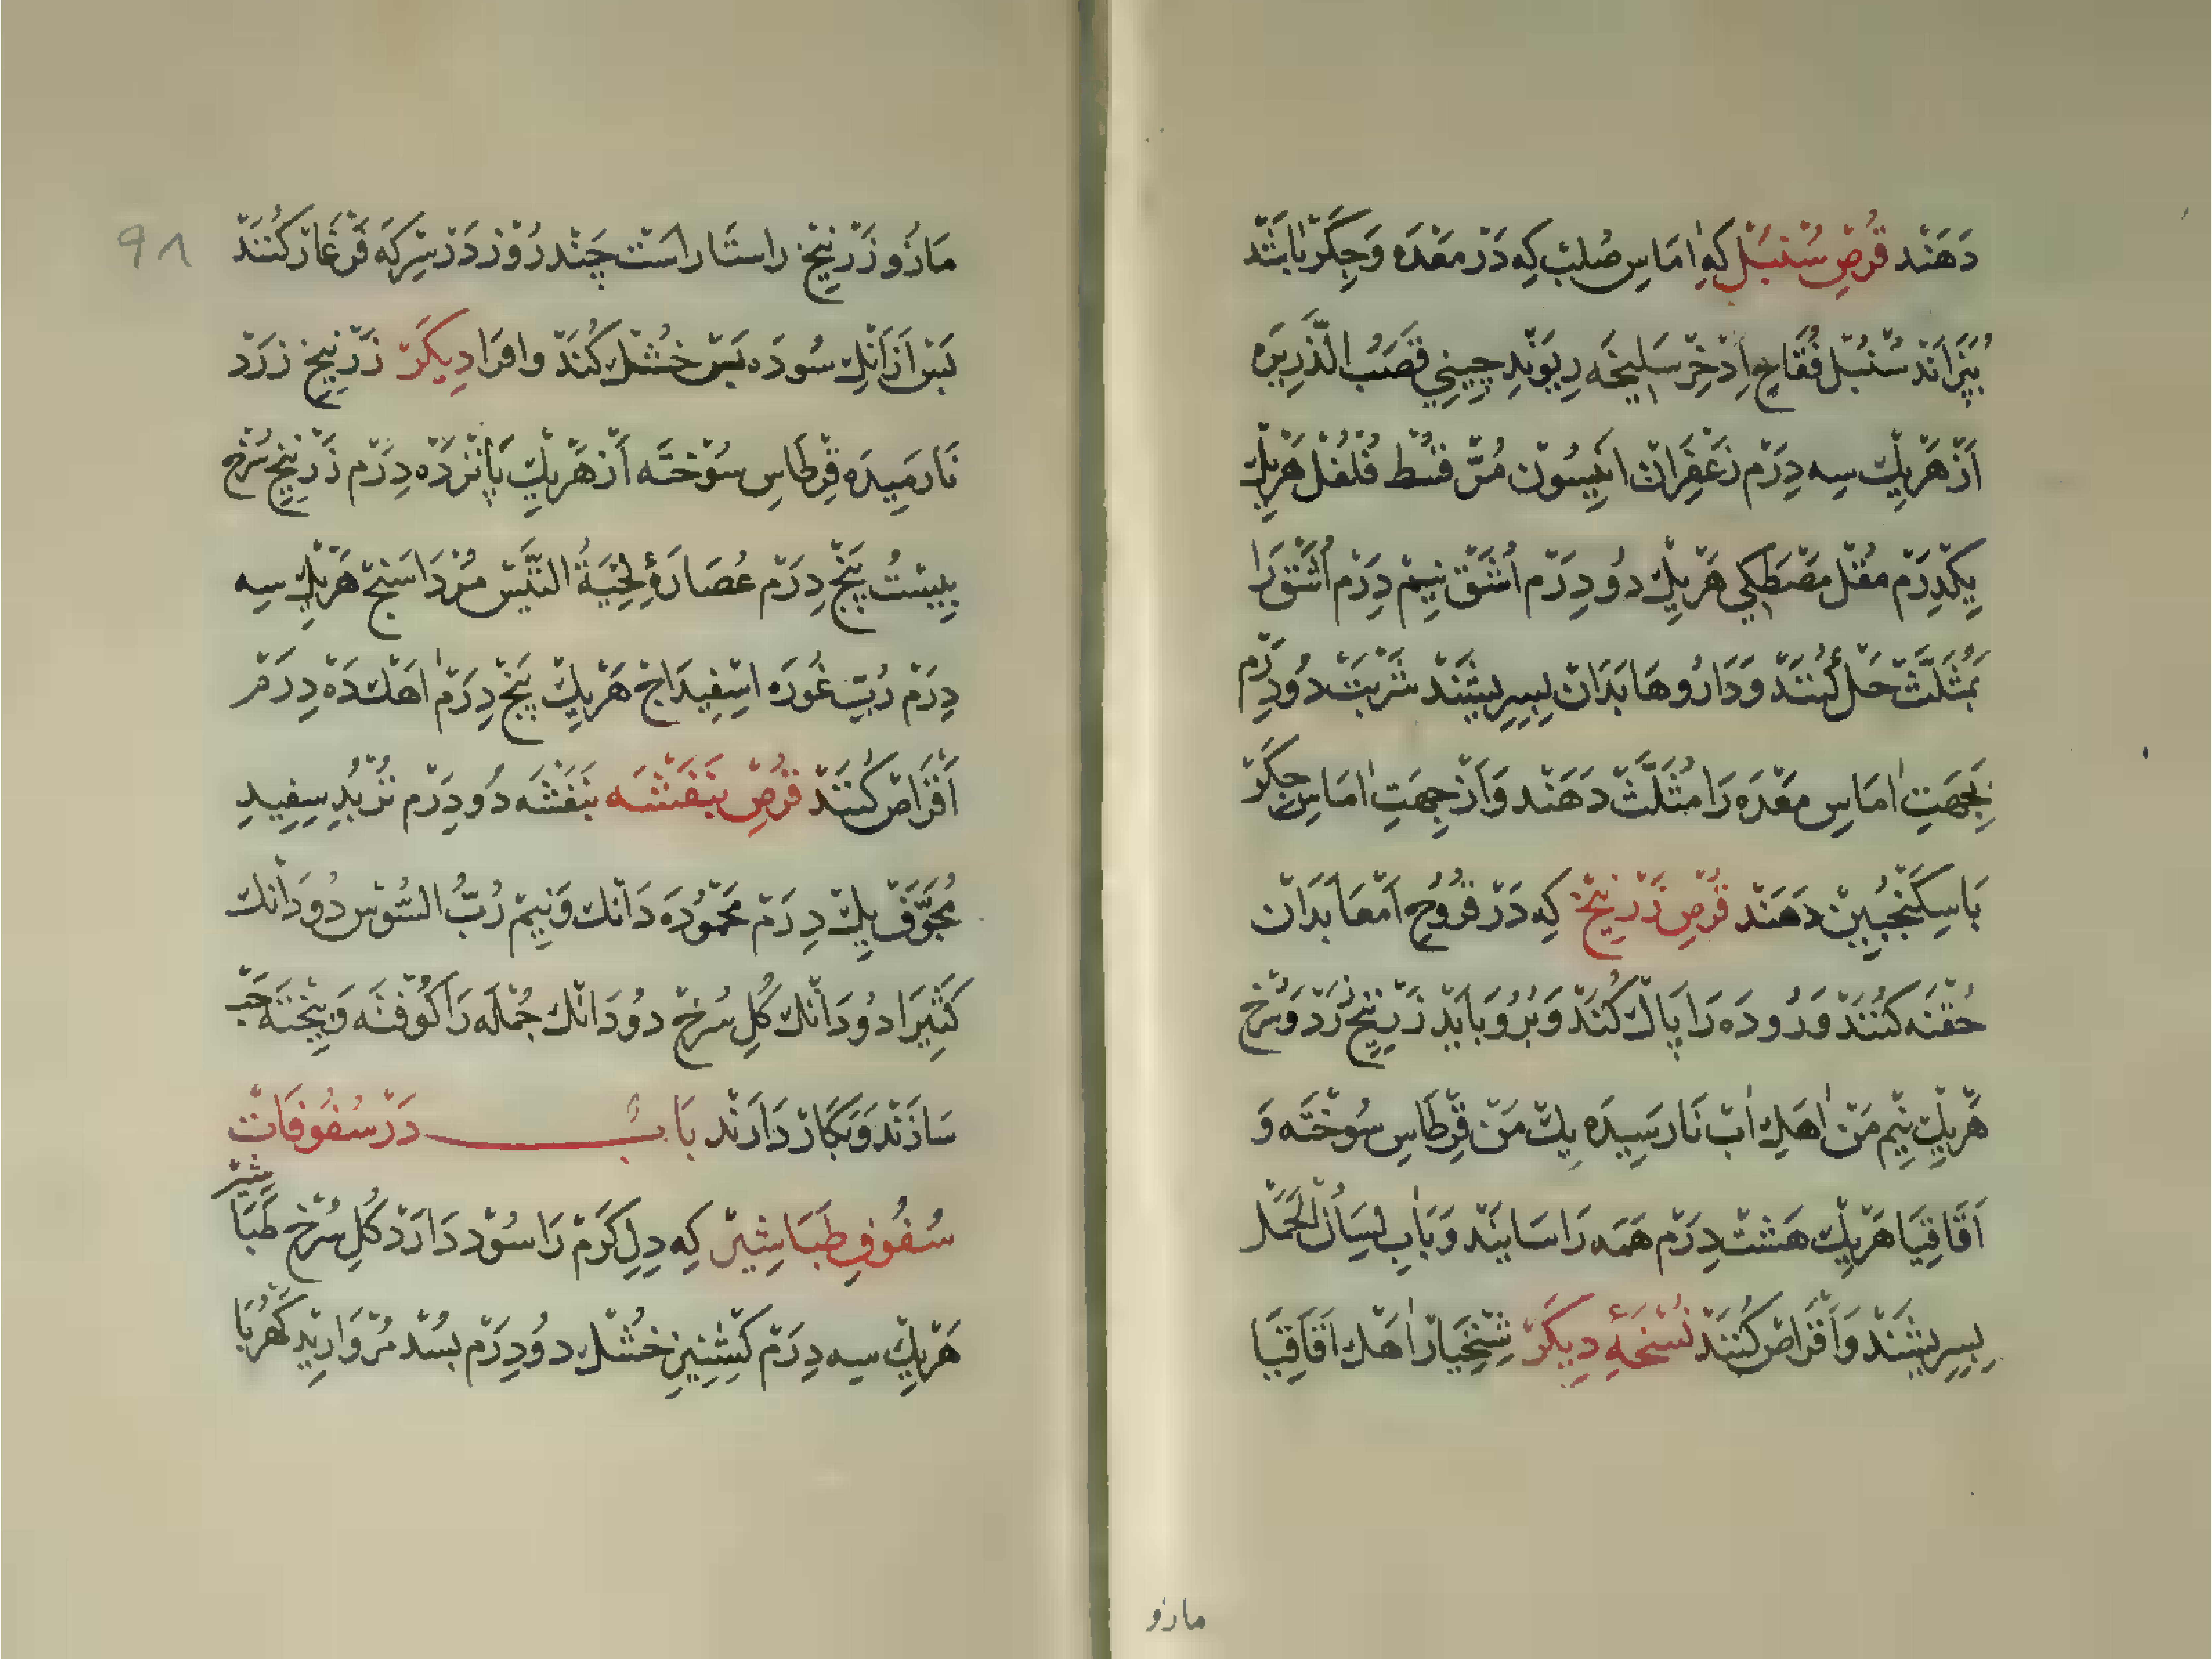 دَهَنْد قُرْصِ سُنْبَلْ كِه اٰمَاسِ صُلبْ كِه دَرْ مَعْدَه وَجِكَرْ بَاشَدْ
بِپَزَانَد سُنْبُلْ فُقَّاحِ اِذْخِرْ سَلِيخَه رِيوَنْدِ چِينِي قَصَبُ الذَّرِيرَه
اَزْ هَرْيِكْ سِه دِرَمْ زَعْفَرَانْ اَنِيسُونْ مُرّ قُسْطْ فُلفُلْ هَرْيِكْ
يِكْدِرَمْ مُقْلْ مَصْطَكِي هَرْيِكْ دو دِرَمْ اُشَّقْ نِيمْ دِرَمْ اُشَّقْ رَا
بمُثَلَّثْ حَلْ كُنَنَدْ وَدَارُوهَا بَدَانْ بِسِرِيشَنْدْ شَرْبَتْ دُودِرَمْ
بَجِهَتِ اٰمَاسِ مَعْدَه رَا مُثَلَّثْ دَهَنْد وَاَزْ جِهَتِ اٰمَاسِ جِكَرْ
بَاسِكَنْجَبِينْ دَهَنْد قُرْصِ زَرْنِيخْ كِه دَرْ قُرُوحِ اَمْعَا بَدَانْ
حُقْنَه كُنَنَدْ وَرُودَه رَا پَاكْ كُنَدْ وَبِرُويَانَدْ زَرْنِيخِ زَرْد وَسُرْخ
هَرْيِكْ نِيم مَنْ اٰهَكِ اٰبْ نَارَسِيدَه يِكْ مَنْ قِرْطَاسِ سُوْخْتَه وَ
اَقَاقِيَا هَرْيِكْ هَشْتْ دِرَمْ هَمَه رَا سَايَنْد وَبَابِ لِسَانُ الْحَمَلْ
بِسِرِيشَنْدْ وَاَقْرَاصْ كُنَنَدْ نُسْخَهٔ دِيكَرْ شِنْخِيَارْ اٰهَكْ اَقَاقِيَا
مازو
٩٨
مَازُو زَرْنِيخْ راستَاراسْتْ چَنْد رُوْز دَرْ سِرِكَه فَرْغَارْ كُنَنَدْ
پَسْ اَزَانْكِ سُودَه پَسْ خُشْك كُنَدْ وافرَا دِيكَرْ زَرْنِيخِ زَرَدْ
نَارَمِيدَه قِرْطَاسِ سُوْخْتَه اَزْ هَرْيِكْ پَانْزَدَه دِرَمْ زَرْنِيخِ سُرْخ
بِيسْتُ پَنْجْ دِرَمْ عُصَارَهٔ لِحْيَةُ التَّيْسْ مُرْدَاسَنْجْ هَرْيِكْ سِه
دِرَمْ رُبّ غُورَه اسْفِيدَاجْ هَرْيِكْ پَنْجْ دِرَمْ اٰهَكْ دَهْ دِرَمْ
اَقْرَاصْ كُنَنَدْ قُرْصِ بَنَفْشَه بَنَفْشَه دُو دِرَمْ تُرْبُدِ سِفِيدِ
مُجَوَّفْ يِكْ دِرَمْ مَحْمُودَه دَانْك وَنِيمْ رُبُّ السُّوْس دُودَانْك
كَتِيرَا دُودَانْك كُلِ سُرخْ دودَانْك جُمْلَه رَا كُوفْتَه وَبِيخْتَه حَبْ
سَازَنْد وَبَكَارْ دَارَنْد بَابْ دَرْ سُفُوفَاتْ
سُفُوفِ طَبَاشِيرْ كِه دِلِ كَرَمْ رَا سُوْد دَارَدْ كُلِ سُرْخ طَبَاشِيرْ
هَرْيِكْ سِه دِرَمْ كَشْنِيزِ خُشْك دودِرَمْ بُسَّدْ مُرْوَارِيدْ كَهْرُبَا